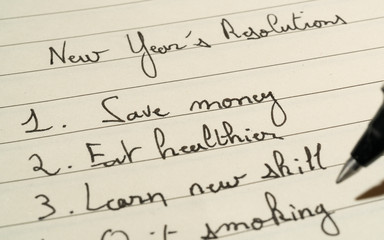 New Year's Resolutions
1. Save money
2. Eat healthier
3. Learn new skill
Quit smoking